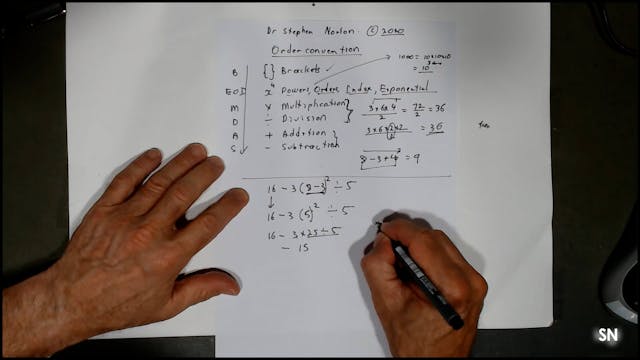 Dr Stephen Norton © 2020
Order convention
1000 = 10×10×10
= 10³
B { } Brackets ✓
EOI x⁴ Powers, Orders, Index, Exponential
M × Multiplication
D ÷ Division
A + Addition
S - Subtraction
3×6×4/2 = 72/2 = 36
= 36
8 - 3 + 4 = 9
16 - 3 (8 - 3)² ÷ 5
16 - 3 (5)² ÷ 5
16 - 3 × 25 ÷ 5
- 15
SN